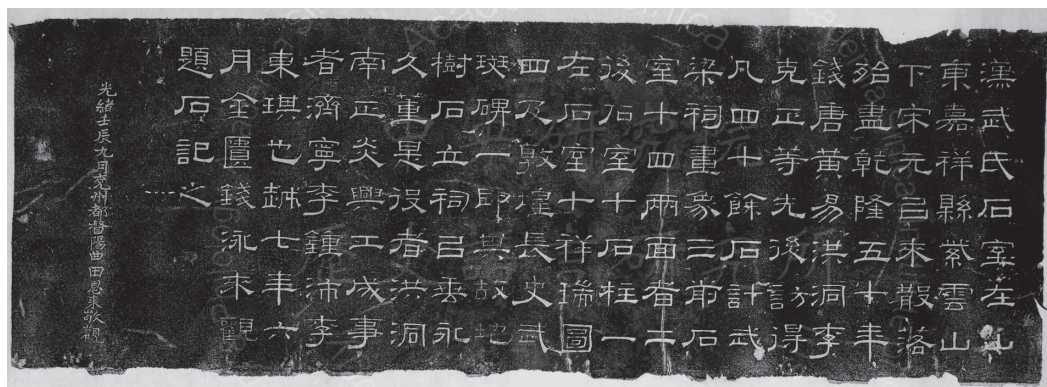 漢武氏石室在山
東嘉祥縣紫雲山
下宋元㠯來散落
殆盡乾隆五十年
錢唐黃易洪洞李
克正等先後訪得
凡四十餘石計武
梁祠畫象三前石
室十四兩面者二
後石室十石柱一
左石室十祥瑞圖
四及敦煌長史武
斑碑一即其故地
樹石立祠㠯垂永
久董是役者洪洞
南正炎興工成事
者濟寧李鍾沛李
東琪也越七年六
月金匱錢泳來觀
題石記之
光緒壬辰九月兗州都督陽曲田恩來敬觀